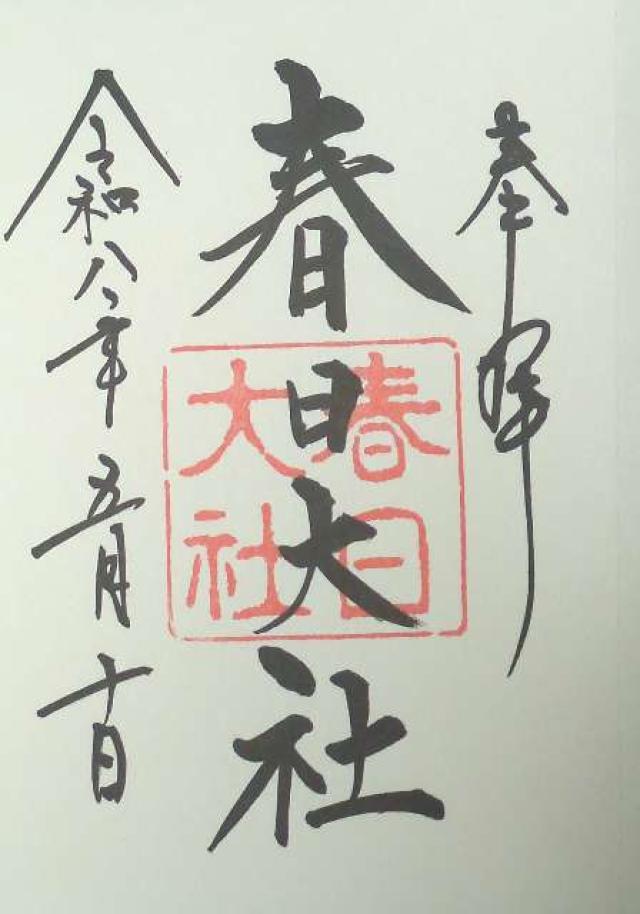 奉拝
春日大社
春日大社
令和八年五月十日